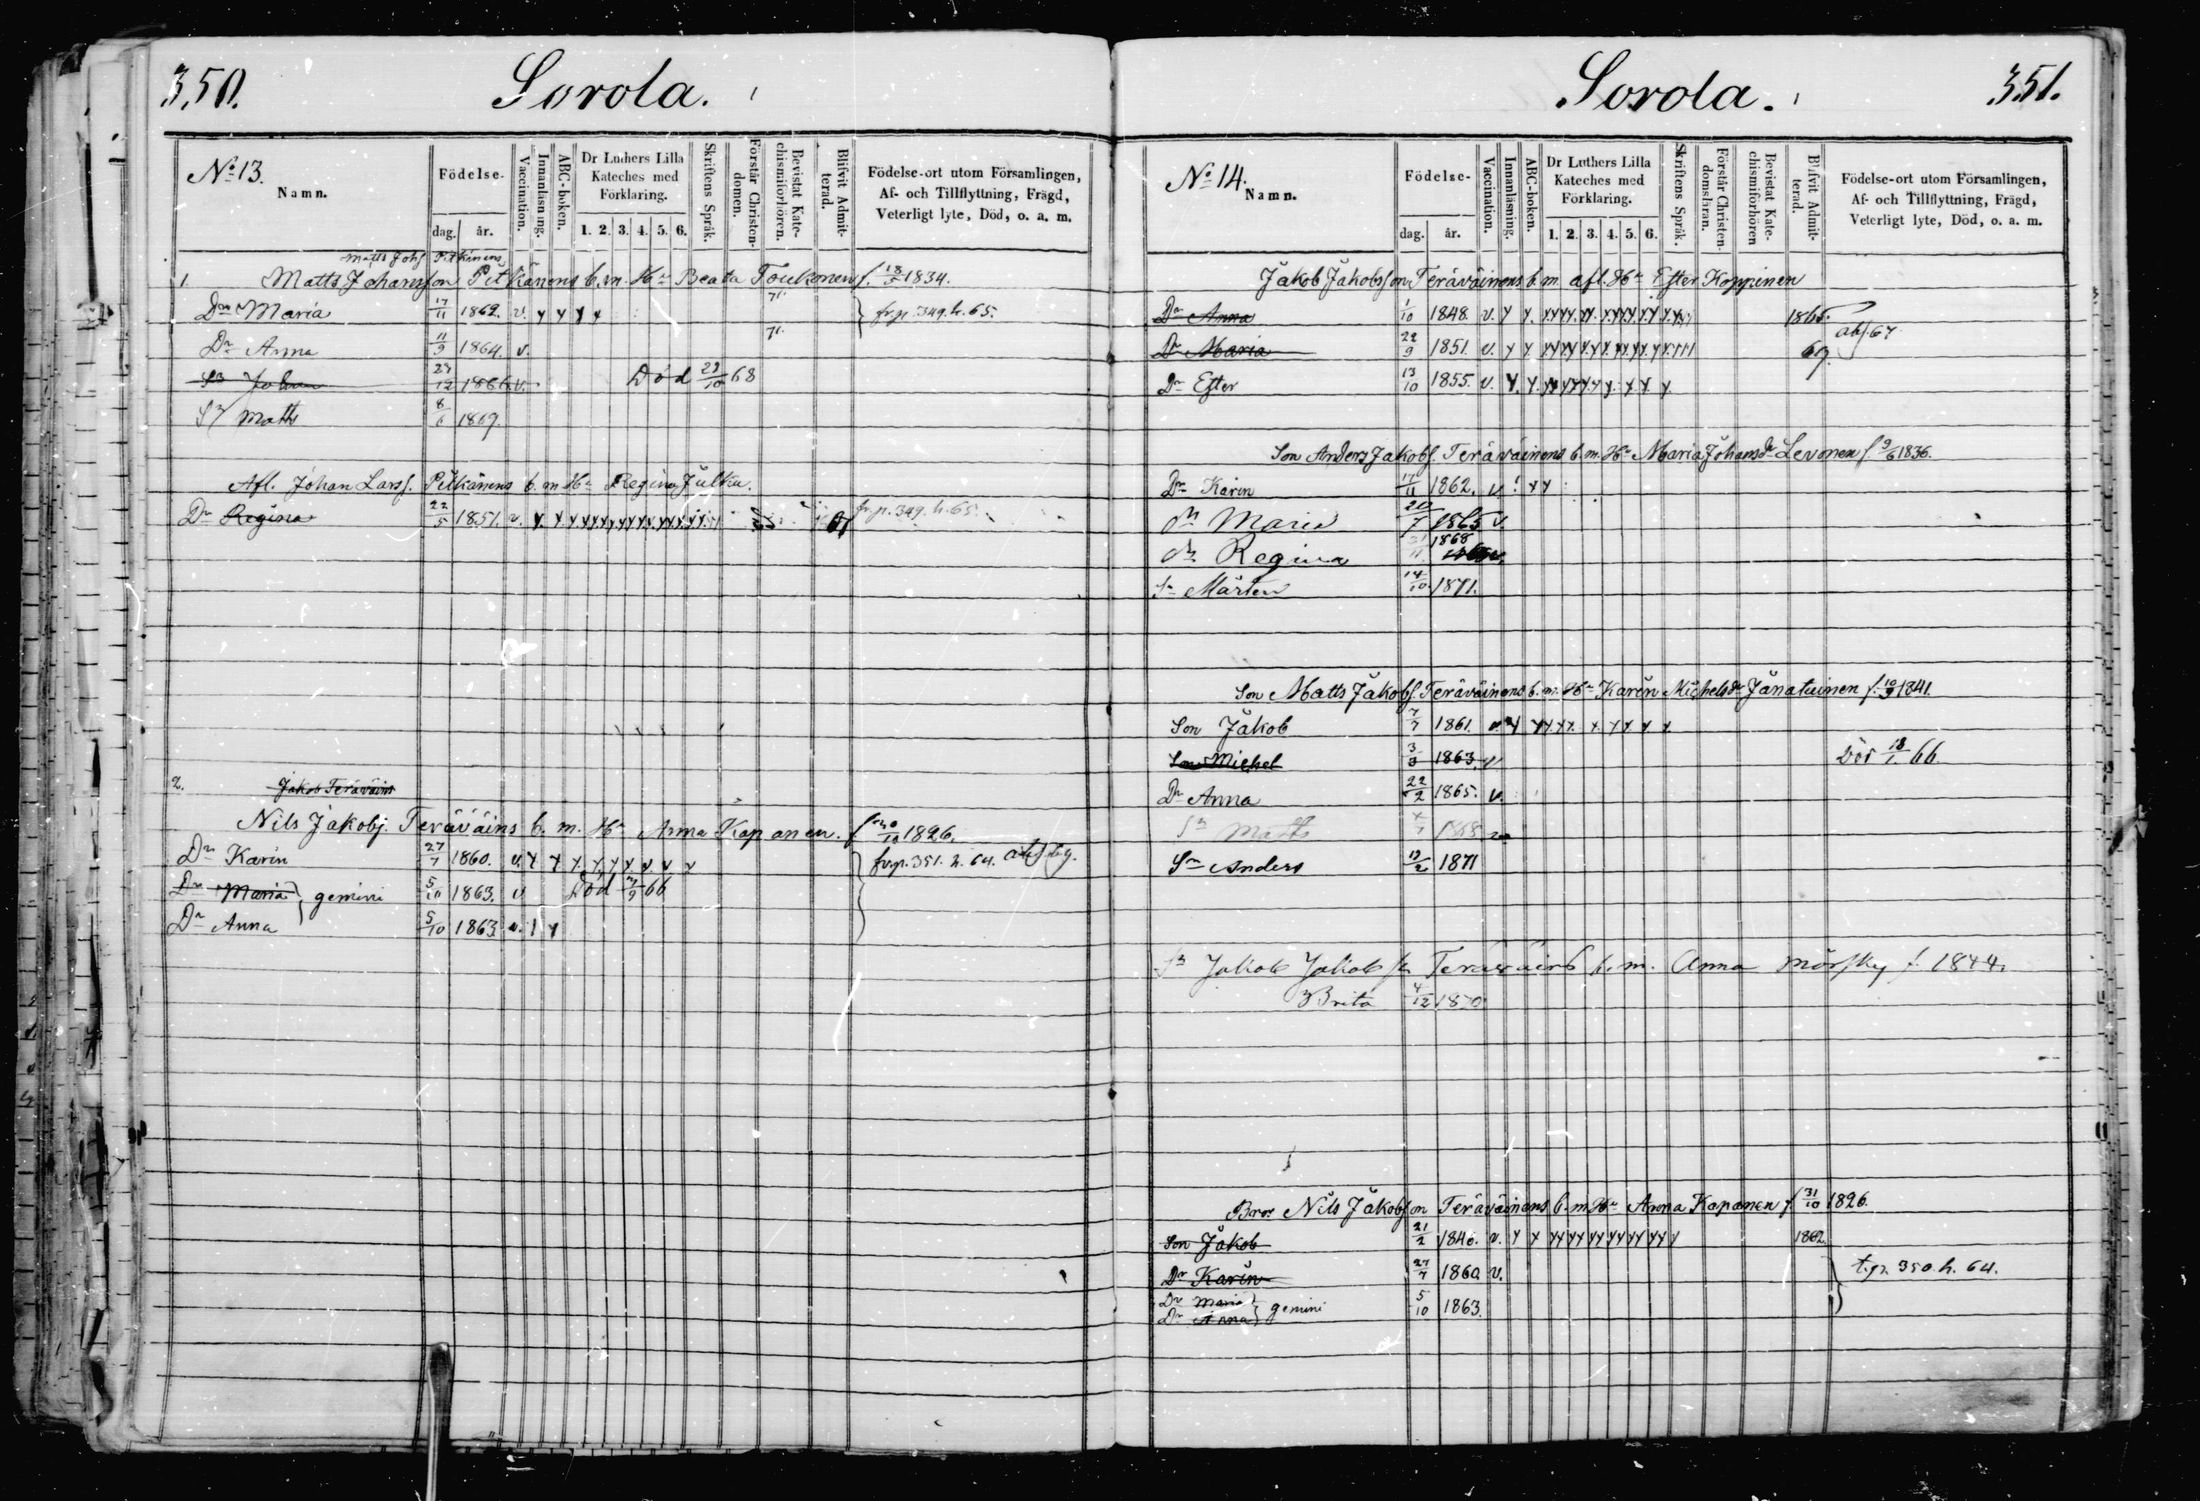 350.
Sorola.
No 13.
Namn.
Födelse-
dag. år.
Vaccination.
Innanläsning.
ABC-boken.
Dr Luthers Lilla
Kateches med
Förklaring.
1. 2. 3. 4. 5. 6.
Skriftens Språk.
Förstår Christen-
domen.
Bevistat Kate-
chismiförhören.
Blifvit Admit-
terad.
Födelse-ort utom Församlingen,
Af- och Tillflyttning, Frägd,
Veterligt lyte, Död, o. a. m.
Matts Johs Pitkänens
1. Matts Johansson Pitkänens b. m. Hu Beata Toukonen f. 18/5 1834.
Dr Maria 17/11 1862. v. y y y y 71. frp. 349. h. 65.
Dr Anna 11/9 1864. v. 71.
Sn Johan 27/12 1866. v. Död 29/10 68
Sn Matts 8/6 1869.
Afl. Johan Larss. Pitkänens b. m Hu Regina Julku.
Dr Regina 22/5 1851. v. frp. 349. h. 65.
2. Jakob Teräväins
Nils Jakobs. Teräväins b. m. Hu Anna Kapanen. f 1826.
Dr Karin 27/7 1860. v. y y y y y y y v v frp. 351. h. 64.
Dr Maria gemini 5/10 1863. v Död 66
Dr Anna 5/10 1863. v. 1 y
351.
Sorola.
No 14.
Namn.
Födelse-
dag. år.
Vaccination.
Innanläsning.
ABC-boken.
Dr Luthers Lilla
Kateches med
Förklaring.
1. 2. 3. 4. 5. 6.
Skriftens Språk.
Förstår Christen-
domsläran.
Bevistat Kate-
chismiförhören
Blifvit Admit-
terad.
Födelse-ort utom Församlingen,
Af- och Tillflyttning, Frägd,
Veterligt lyte, Död, o. a. m.
Jakob Jakobsson Teräväinens b. m. afl. Hu Ester Koppinen
Dr Anna 1/10 1848. v. y y. 1865.
Dr Maria 22/9 1851. v. y y 69. 67
Dr Ester 13/10 1855. v. y. y.
Son Anders Jakobs. Teräväinens b. m. Hu Maria Johansdr Levonen f 9/6 1836.
Dr Karin 17/11 1862. v ! y y
Dr Maria 20/7 1865 v.
Dr Regina 1868
Sn Mårten 14/10 1871.
Son Matts Jakobs. Teräväinens b. m. Hu Karin Michelsdr Jänatuinen f. 10/9 1841.
Son Jakob 7/7 1861. v. y
Son Michel 3/3 1863. v Död 18/1 66
Dr Anna 22/2 1865. v.
Sn Matts 1868 v
Sn Anders 1871
Sn Jakob Jakobsn Teräväins b. m. Anna Mörsky f. 1844.
Brita 4/12 1870
Bror Nils Jakobsson Teräväinens b. m Hu Anna Kapanen f 31/10 1826.
Son Jakob 21/2 1846. v. y y 1862.
Dr Karin 27/7 1860. v. t.p. 350. h. 64.
Dr Maria gemini 5/10 1863.
Dr Anna